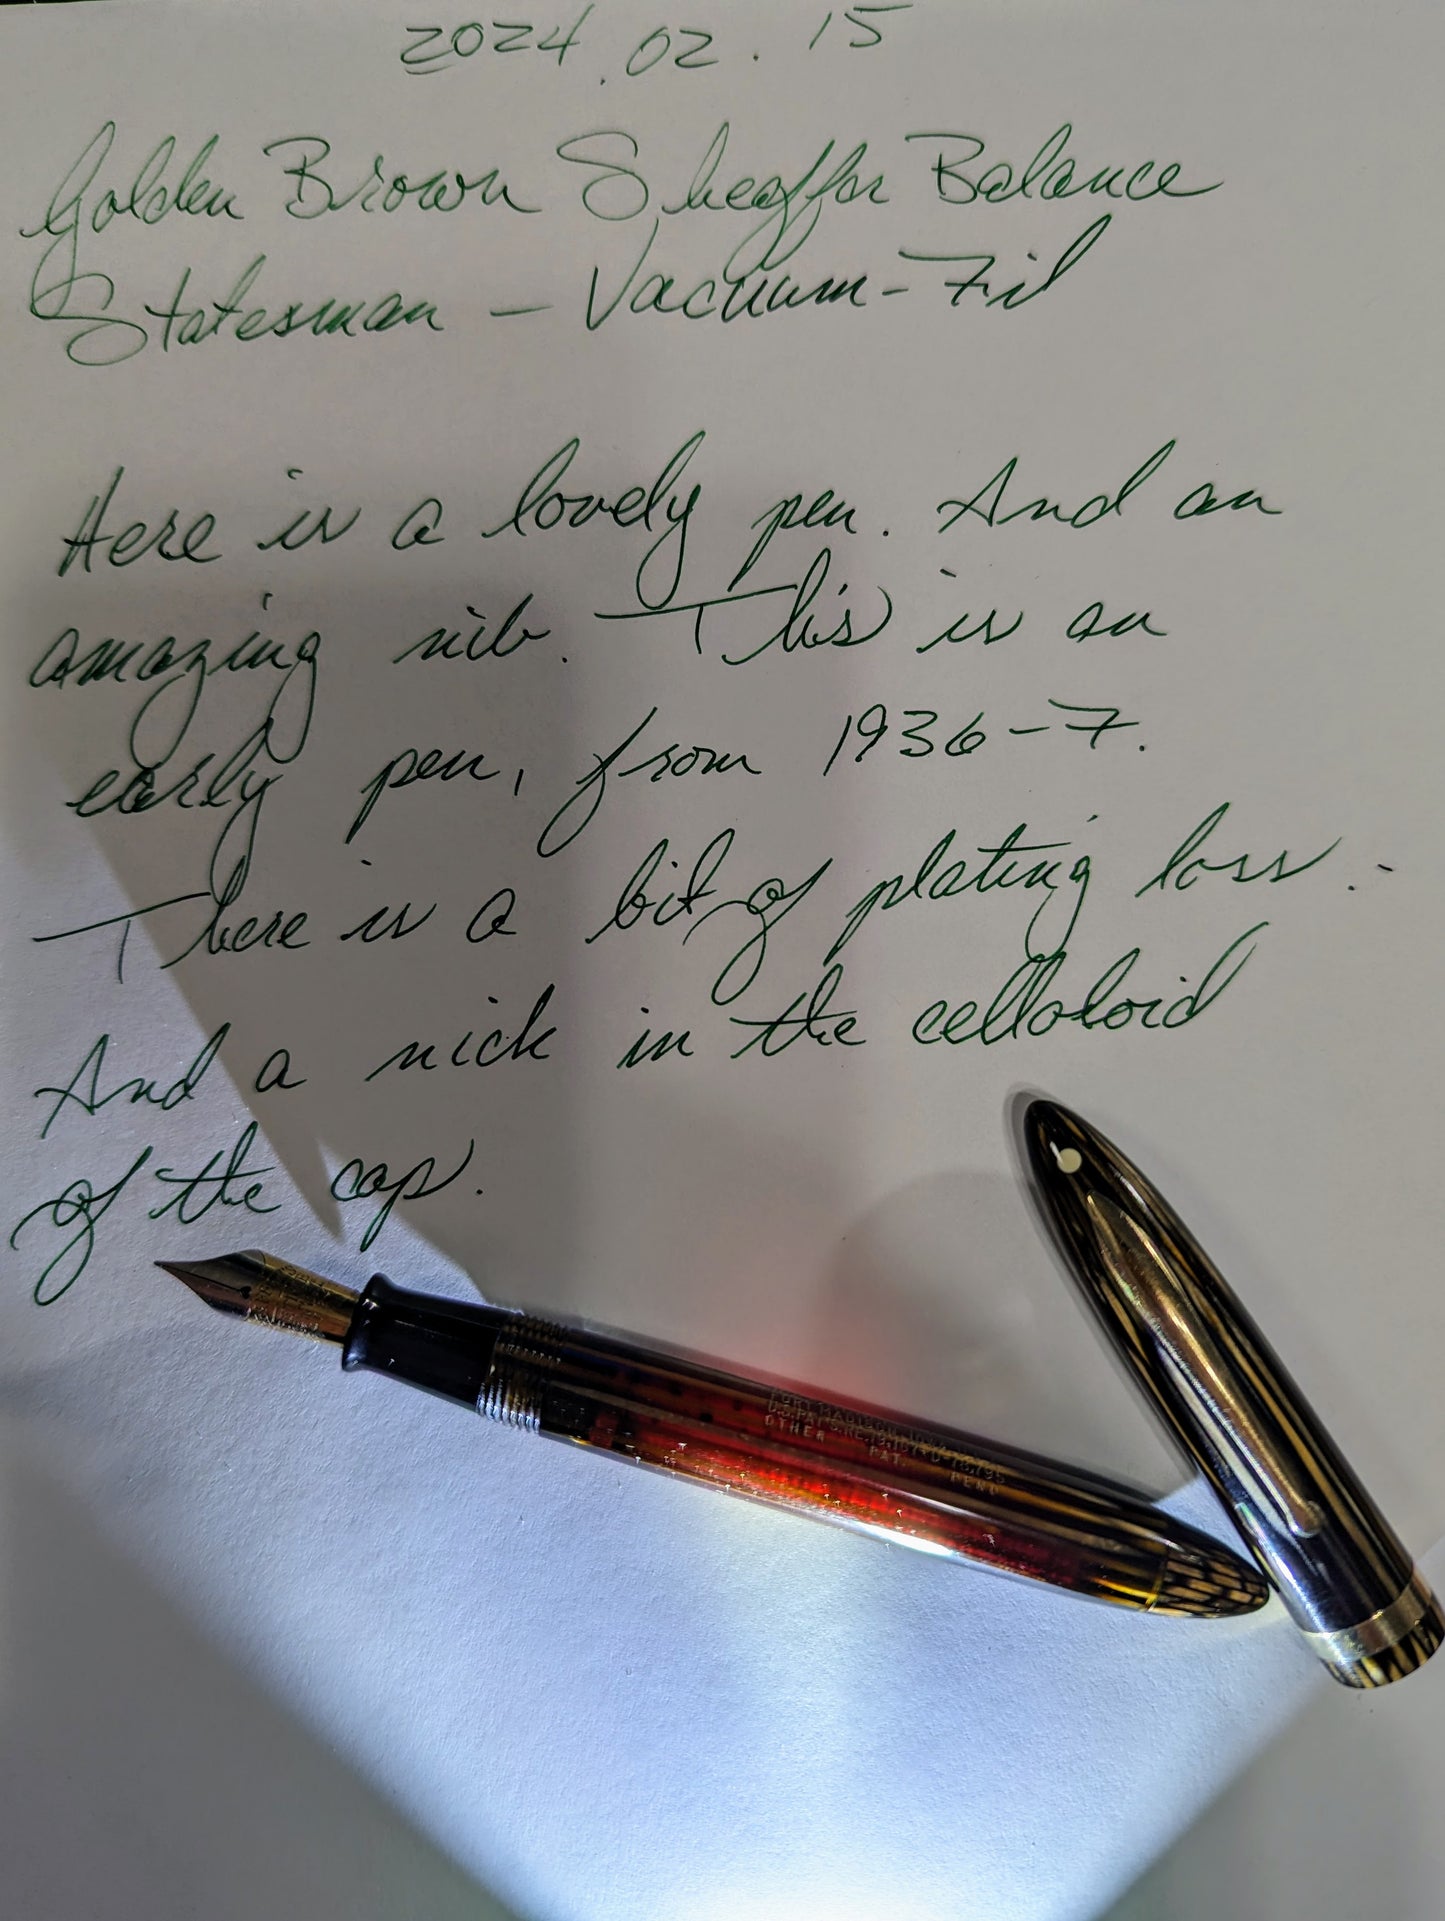 2024.02.15
Golden Brown Sheaffer Balance
Statesman – Vacuum-Fil
Here is a lovely pen. And an
amazing nib. This is an
early pen, from 1936-7.
There is a bit of plating loss.
And a nick in the celloloid
of the cap.
FORT MADISON, IOWA
OTHER PAT. PEND